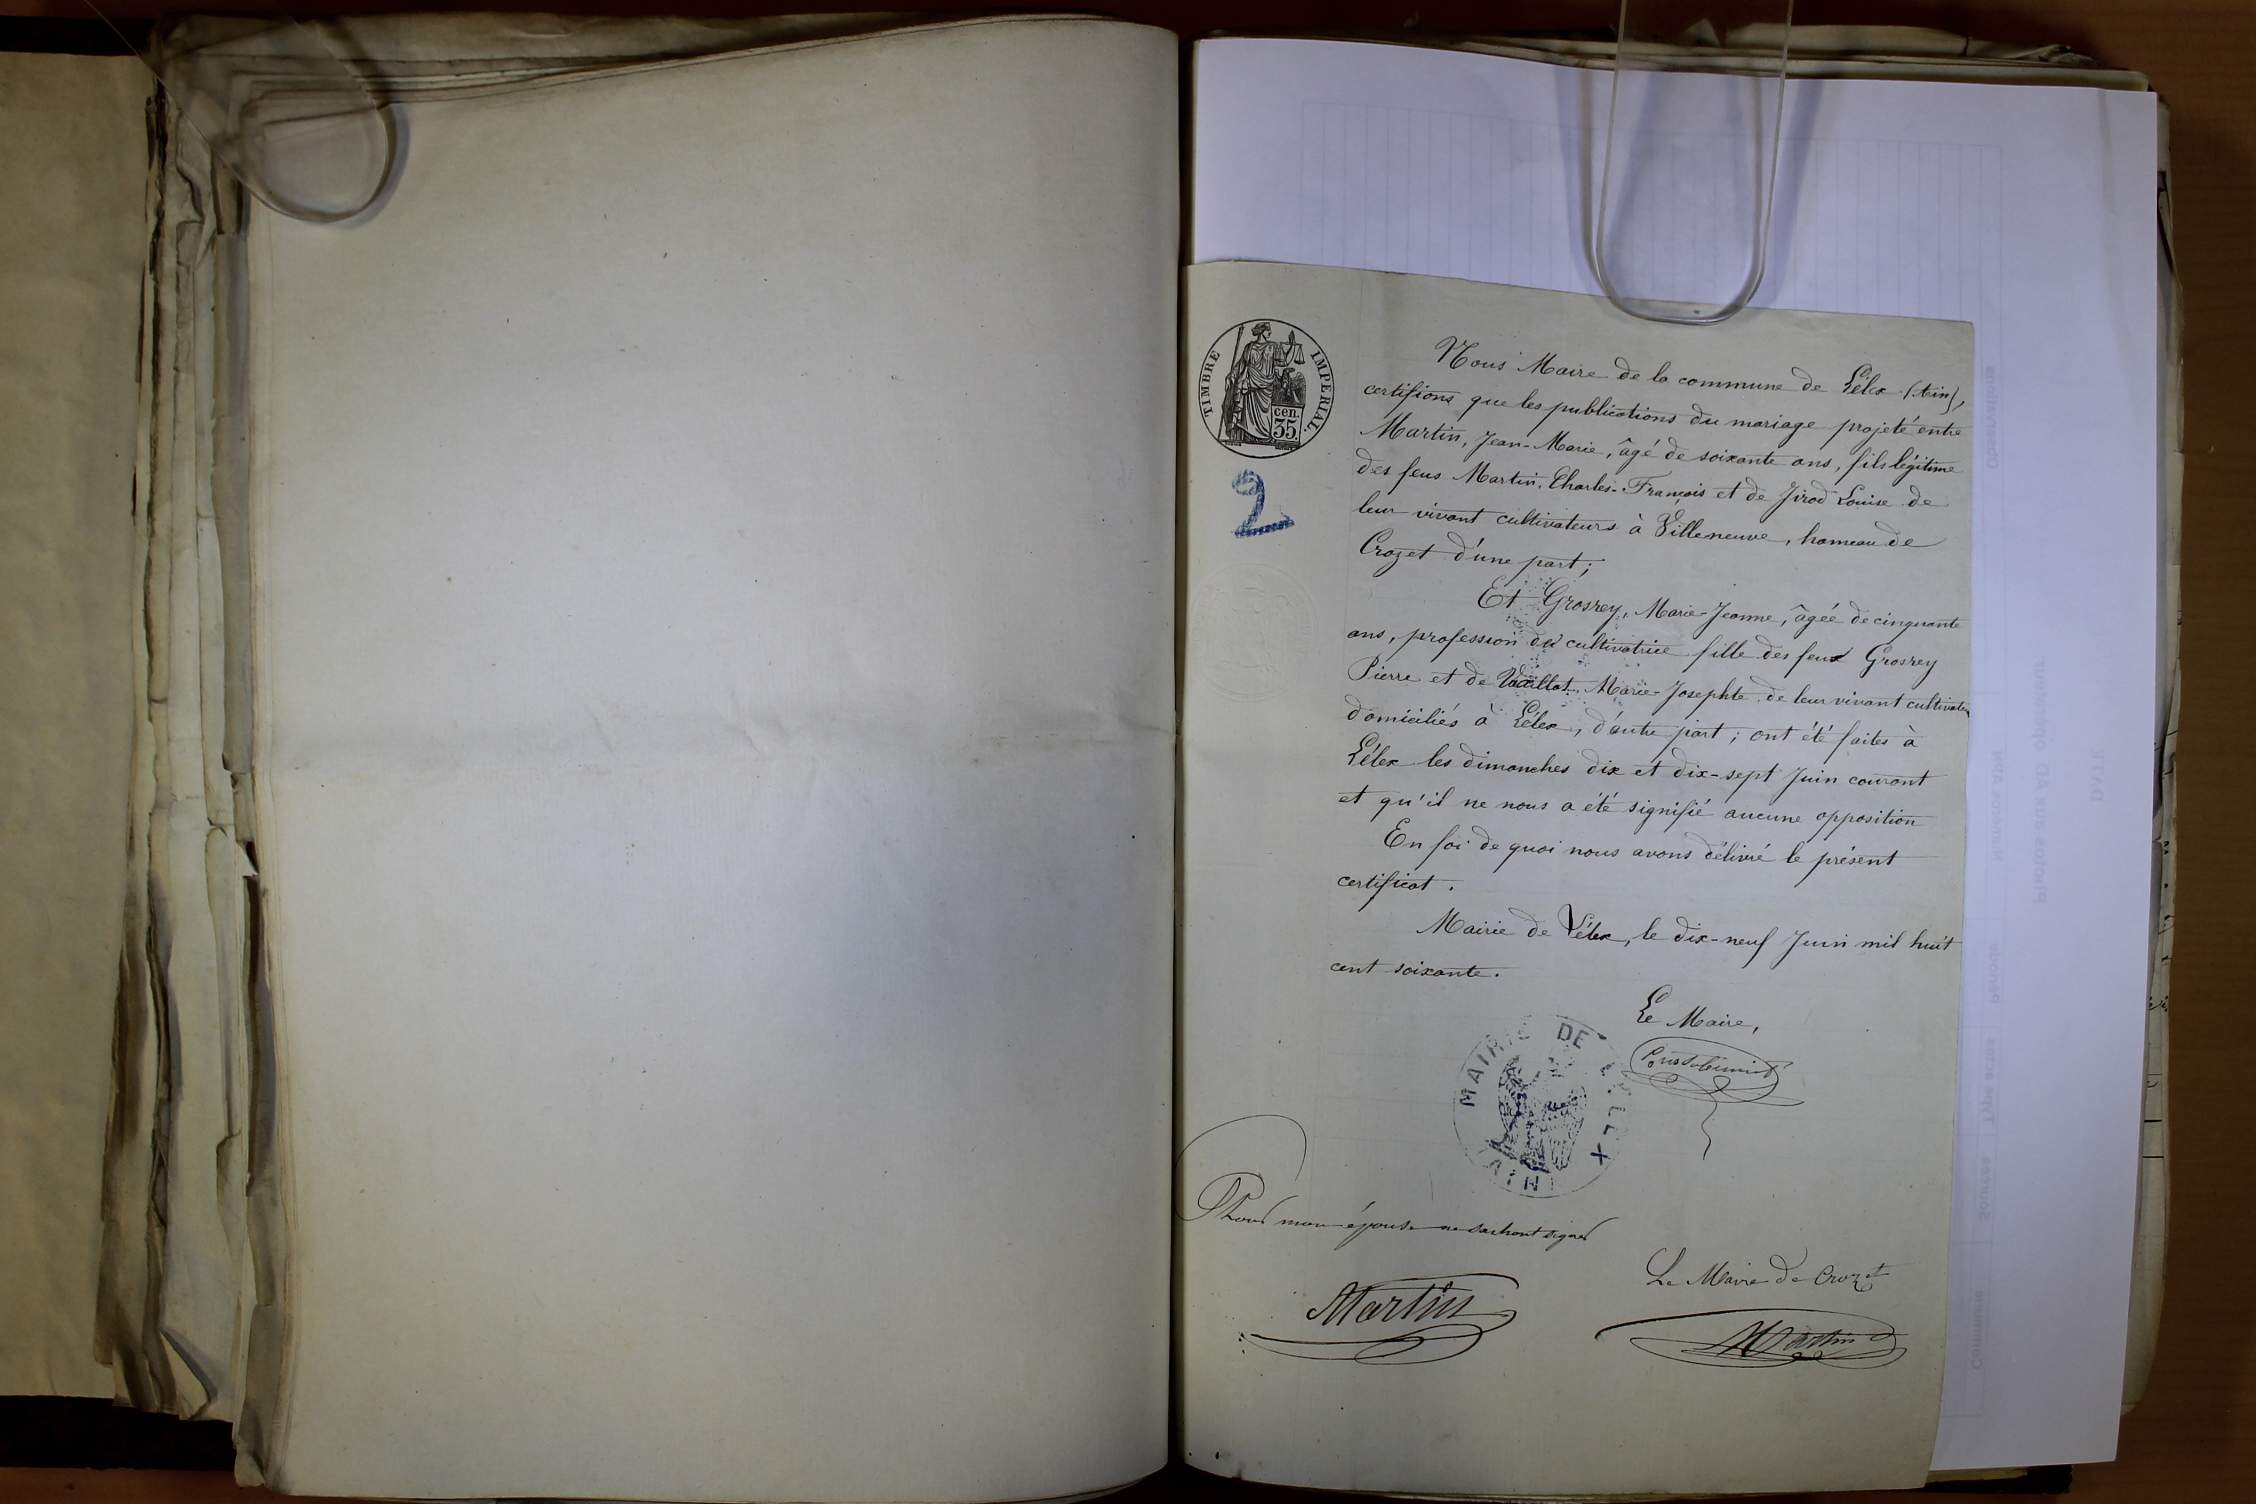 TIMBRE IMPERIAL.
cen.
35.
2
Nous Maire de la commune de Lélex (Ain),
certifions que les publications du mariage projeté entre
Martin, Jean-Marie, âgé de soixante ans, fils légitime
des feus Martin, Charles-François et de Jirod Louise de
leur vivant cultivateurs à Villeneuve, hameau de
Crozet d'une part;
Et Grosrey, Marie-Jeanne, âgée de cinquante
ans, profession de cultivatrice fille des feux Grosrey
Pierre et de Marie-Josephte de leur vivant cultivateurs
domiciliés à Lélex, d'autre part; ont été faites à
Lélex les dimanches dix et dix-sept Juin courant
et qu'il ne nous a été signifié aucune opposition
En foi de quoi nous avons délivré le présent
certificat.
Mairie de Lélex, le dix-neuf Juin mil huit
cent soixante.
Le Maire,
MAIRIE DE LELEX
(AIN)
Pour mon épouse ne sachant signer
Le Maire de Crozet
Martin
Martin